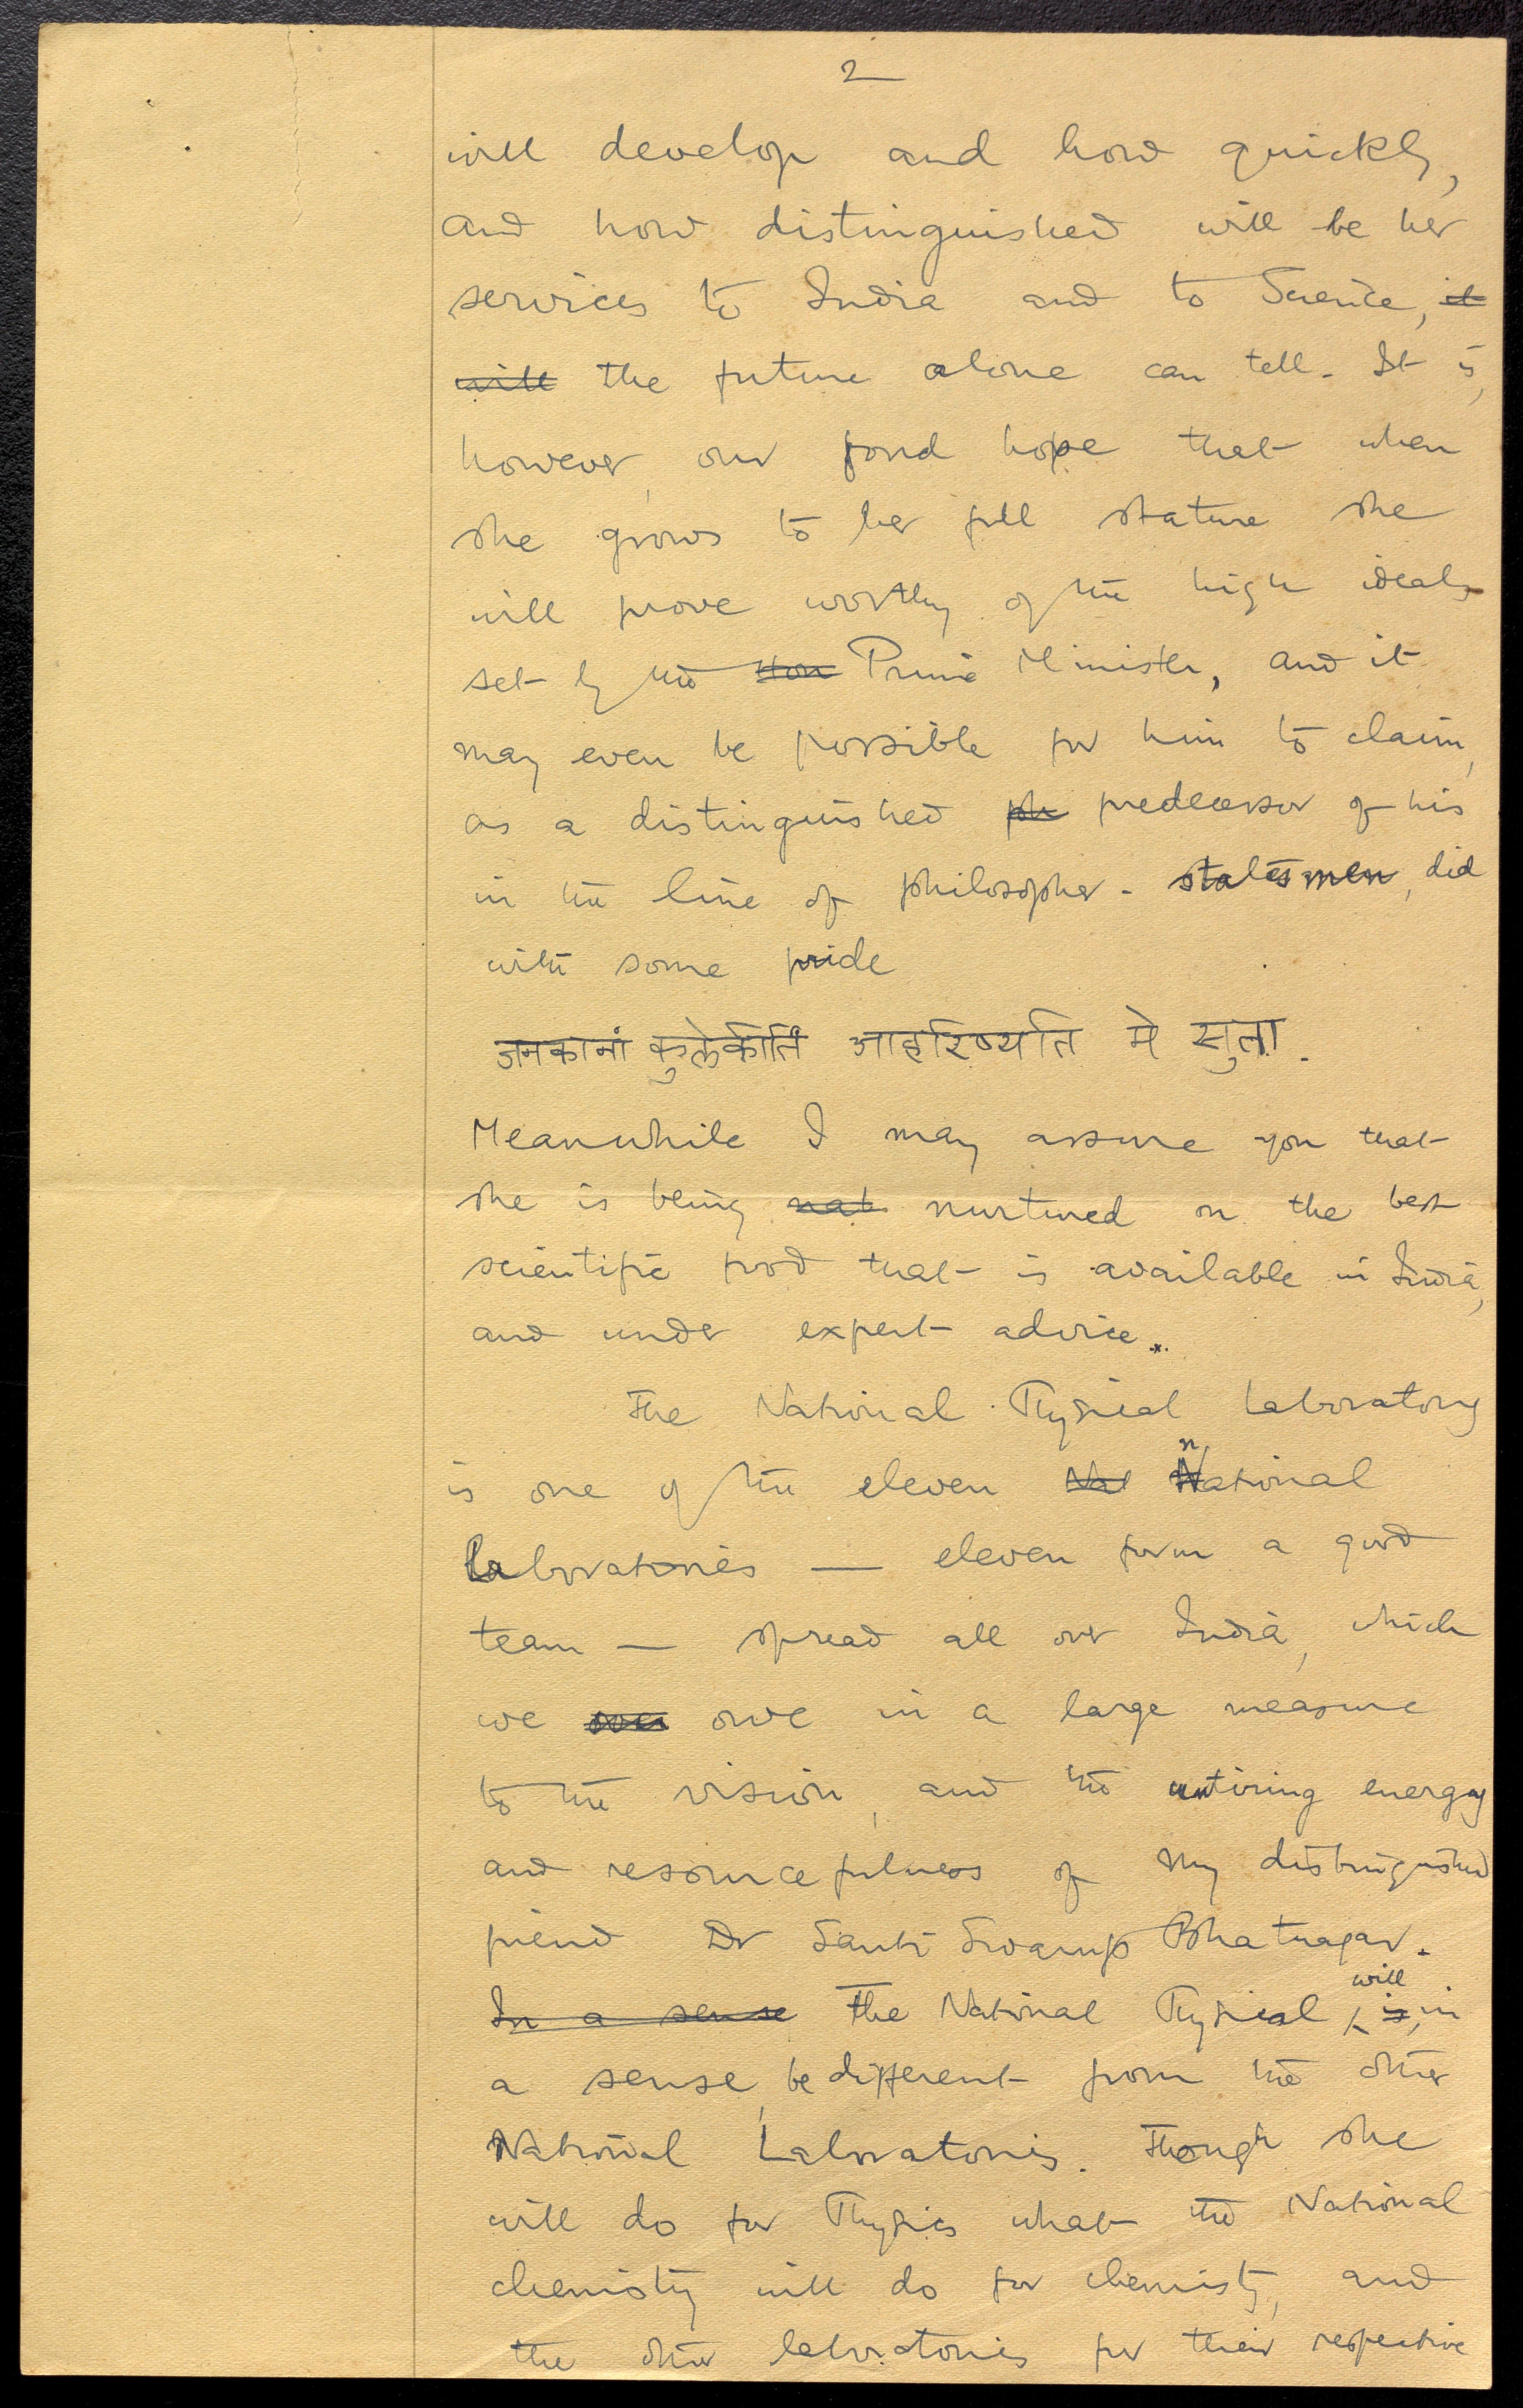 2
will develop and how quickly,
and how distinguished will be her
services to India and to Science, it
will the future alone can tell. It is,
however, our fond hope that when
she grows to her full stature she
will prove worthy of the high ideals
set by the Hon Prime Minister, and it
may even be possible for him to claim,
as a distinguished ph predecessor of his
in the line of philosopher-statesmen, did
with some pride
जनकानां कुले कीर्तिं आहरिष्यति मे सुता.
Meanwhile I may assure you that
she is being nat nurtured on the best
scientific food that is available in India,
and under expert advice.
The National Physical Laboratory
is one of the eleven Nat national
laboratories — eleven form a good
team — spread all over India, which
we own owe in a large measure
to the vision, and the untiring energy
and resourcefulness of my distinguished
friend Dr Santi Swarup Bhatnagar.
In a sense The National Physical will is, in
a sense, be different from the other
National Laboratories. Though she
will do for Physics what the National
chemistry will do for chemistry, and
the other laboratories for their respective